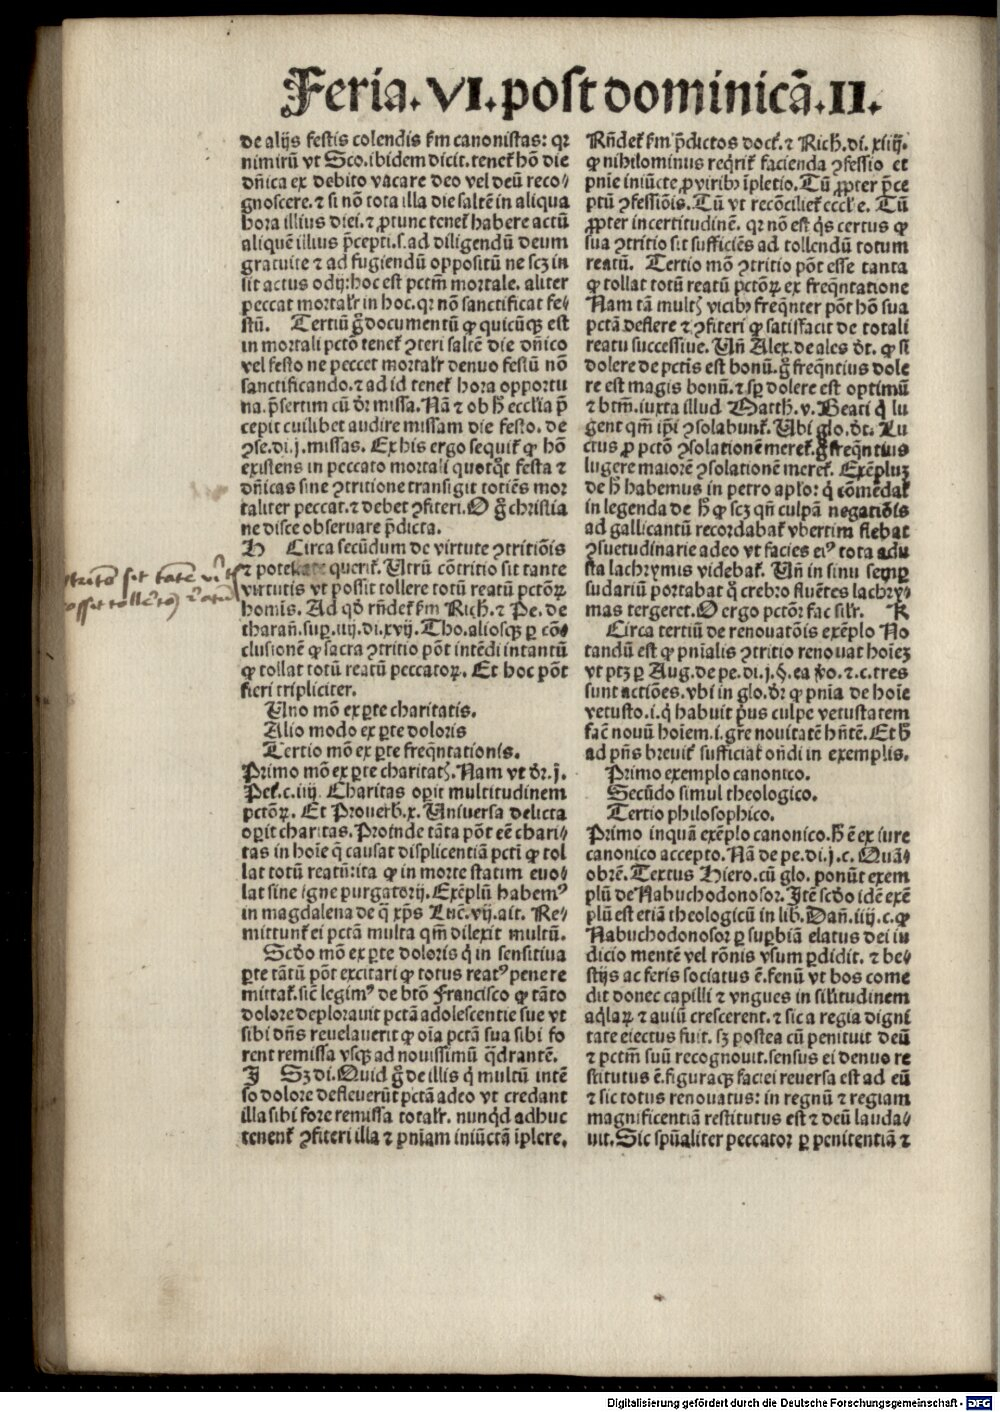 Feria. VI. post dominicā. II.
de alijs festis colendis ẜm canonistas: qꝛ
nimirū vt Sco. ibidem dicit. tenet̄ hō die
dn̄ica ex debito vacare deo vel deū reco⸗
gnoscere. ⁊ si nō tota illa die saltē in aliqua
hora illius diei. ⁊ ꝓ tunc tenet̄ habere actū
aliquē illius p̄cepti. s. ad diligendū deum
gratuite ⁊ ad fugiendū oppositū ne scꝫ in
sit actus odij: hoc est pctm̄ mortale. aliter
peccat mortalr̄ in hoc. qꝛ nō sanctificat fe⸗
stū. Tertiū g̊ documentū ꝙ quicūqꝫ est
in mortali pctō tenet̄ ꝯteri saltē die dn̄ico
vel festo ne peccet mortalr̄ denuo festū nō
sanctificando. ⁊ ad id tenet̄ hora opportu
na. p̄sertim cū dr̄ missa. Nā ⁊ ob ħ eccłia p̄
cepit cuilibet audire missam die festo. de
ꝯse. di. j. missas. Ex his ergo sequit̄ ꝙ hō
existens in peccato mortali quotqt̄ festa ⁊
dn̄icas sine ꝯtritione transigit totiēs mor
taliter peccat. ⁊ debet ꝯfiteri. O g̊ christia
ne disce obseruare p̄dicta.
H Circa secūdum de virtute ꝯtritiōis
⁊ potestate querit̄. Utrū cōtritio sit tante
virtutis vt possit tollere totū reatū pctōꝝ
homīs. Ad qd̄ rn̄det̄ ẜm Rich. ⁊ Pe. de
tharan̄. suꝑ. iiij. di. xvij. Tho. aliosqꝫ ꝑ cō⸗
clusionē ꝙ sacra ꝯtritio pōt intēdi intantū
ꝙ tollat totū reatū peccatoꝝ. Et hoc pōt
fieri tripliciter.
Uno mō ex ꝑte charitatis.
Alio modo ex ꝑte doloris
Tertio mō ex ꝑte freqn̄tationis.
Primo mō ex ꝑte charitatꝭ. Nam vt dr̄. j.
Pet̄. c. iiij. Charitas oꝑit multitudinem
pctōꝝ. Et Prouerb. x. Uniuersa delicta
oꝑit charitas. Proinde tāta pōt eē chari⸗
tas in hoīe q̄ causat displicentiā pcti ꝙ tol
lat totū reatū: ita ꝙ in morte statim euo⸗
lat sine igne purgatorij. Exēplū habemꝰ
in magdalena de q̄ xp̄s Luc̄. vij. ait. Re⸗
mittunt̄ ei pctā multa qm̄ dilexit multū.
Scd̄o mō ex ꝑte doloris q̇ in sensitiua
ꝑte tātū pōt excitari ꝙ totus reatꝰ pene re
mittat̄. sic̄ legimꝰ de btō Francisco ꝙ tāto
dolore deplorauit pctā adolescentie sue vt
sibi dn̄s reuelauerit ꝙ oīa pctā sua sibi fo
rent remissa vsqꝫ ad nouissimū q̄drantē.
J Sꝫ di. Quid g̊ de illis q̇ multū intē
so dolore defleuerūt pctā adeo vt credant
illa sibi fore remissa totalr̄. nunqd̄ adhuc
tenent̄ ꝯfiteri illa ⁊ pn̄iam iniūctā īplere.
Rn̄det̄ ẜm p̄dictos doct̄. ⁊ Rich. di. xiiij.
ꝙ nihilominus reqrit̄ facienda ꝯfessio et
pn̄ie iniūcte ꝓ viribꝫ īpletio. Tū ꝓpter p̄ce
ptū ꝯfessiōis. Tū vt recōcilief̄ eccłie. Tū
ꝓpter incertitudinē. qꝛ nō est q̇s certus ꝙ
sua ꝯtritio sit sufficiēs ad tollendū totum
reatū. Tertio mō ꝯtritio pōt esse tanta
ꝙ tollat totū reatū pctōꝝ ex freqn̄tatione
Nam tā multꝭ vicibꝫ freqn̄ter pōt hō sua
pctā deflere ⁊ ꝯfiteri ꝙ satisfacit de totali
reatu successiue. Un̄ Alex. de ales dt̄. ꝙ si
dolere de pctīs est bonū. g̊ freqn̄tius dole
re est magis bonū. ⁊ sꝑ dolere est optimū
⁊ btm̄. iuxta illud Matth. v. Beati q̇ lu
gent qm̄ ipi̅ ꝯsolabunt̄. Ubi glo. dt̄. Lu
ctus ꝓ pctō ꝯsolationē meret̄. g̊ freqn̄tius
lugere maiorē ꝯsolationē meret̄. Exēpluꝫ
de ħ habemus in petro apło: q̇ cōmēdat̄
in legenda de ħ ꝙ scꝫ qn̄ culpā negatiōis
ad gallicantū recordabat̄ vbertim flebat
ꝯsuetudinarie adeo vt facies eiꝰ tota adu
sta lachrymis videbat̄. Un̄ in sinu semꝑ
sudariū portabat q̊ crebro fluētes lachry⸗
mas tergeret. O ergo pctōr fac silr̄. K
Circa tertiū de renouatōis exēplo No
tandū est ꝙ pn̄ialis ꝯtritio renouat hoīeꝫ
vt ptꝫ ꝑ Aug. de pe. di. j. §. ea v̊o. ⁊. c. tres
sunt actiōes. vbi in glo. dr̄ ꝙ pn̄ia de hoīe
vetusto. i. q̇ habuit p̄us culpe vetustatem
fac̄ nouū hoīem. i. grē nouitatē hn̄tē. Et ħ
ad p̄n̄s breuit̄ sufficiat on̄di in exemplis.
Primo exemplo canonico.
Secūdo simul theologico.
Tertio philosophico.
Primo inquā exēplo canonico. ħ ē ex iure
canonico accepto. Nā de pe. di. j. c. Quā⸗
obrē. Textus Hiero. cū glo. ponūt exem
plū de Nabuchodonosor. Itē scd̄o idē exē
plū est etiā theologicū in lib. Dan̄. iiij. c. ꝙ
Nabuchodonosor ꝑ suꝑbiā elatus dei iu
dicio mentē vel rōnis vsum ꝑdidit. ⁊ be⸗
stijs ac feris sociatus ē. fenū vt bos come
dit donec capilli ⁊ vngues in silitudinem
aq̇laꝝ ⁊ auiū crescerent. ⁊ sic a regia digni
tate eiectus fuit. sꝫ postea cū penituit deū
⁊ pctm̄ suū recognouit. sensus ei denuo re
stitutus ē. figuraqꝫ faciei reuersa est ad eū
⁊ sic totus renouatus: in regnū ⁊ regiam
magnificentiā restitutus est ⁊ deū lauda⸗
uit. Sic spūaliter peccator ꝑ penitentiā ⁊
Digitalisierung gefördert durch die Deutsche Forschungsgemeinschaft - DFG